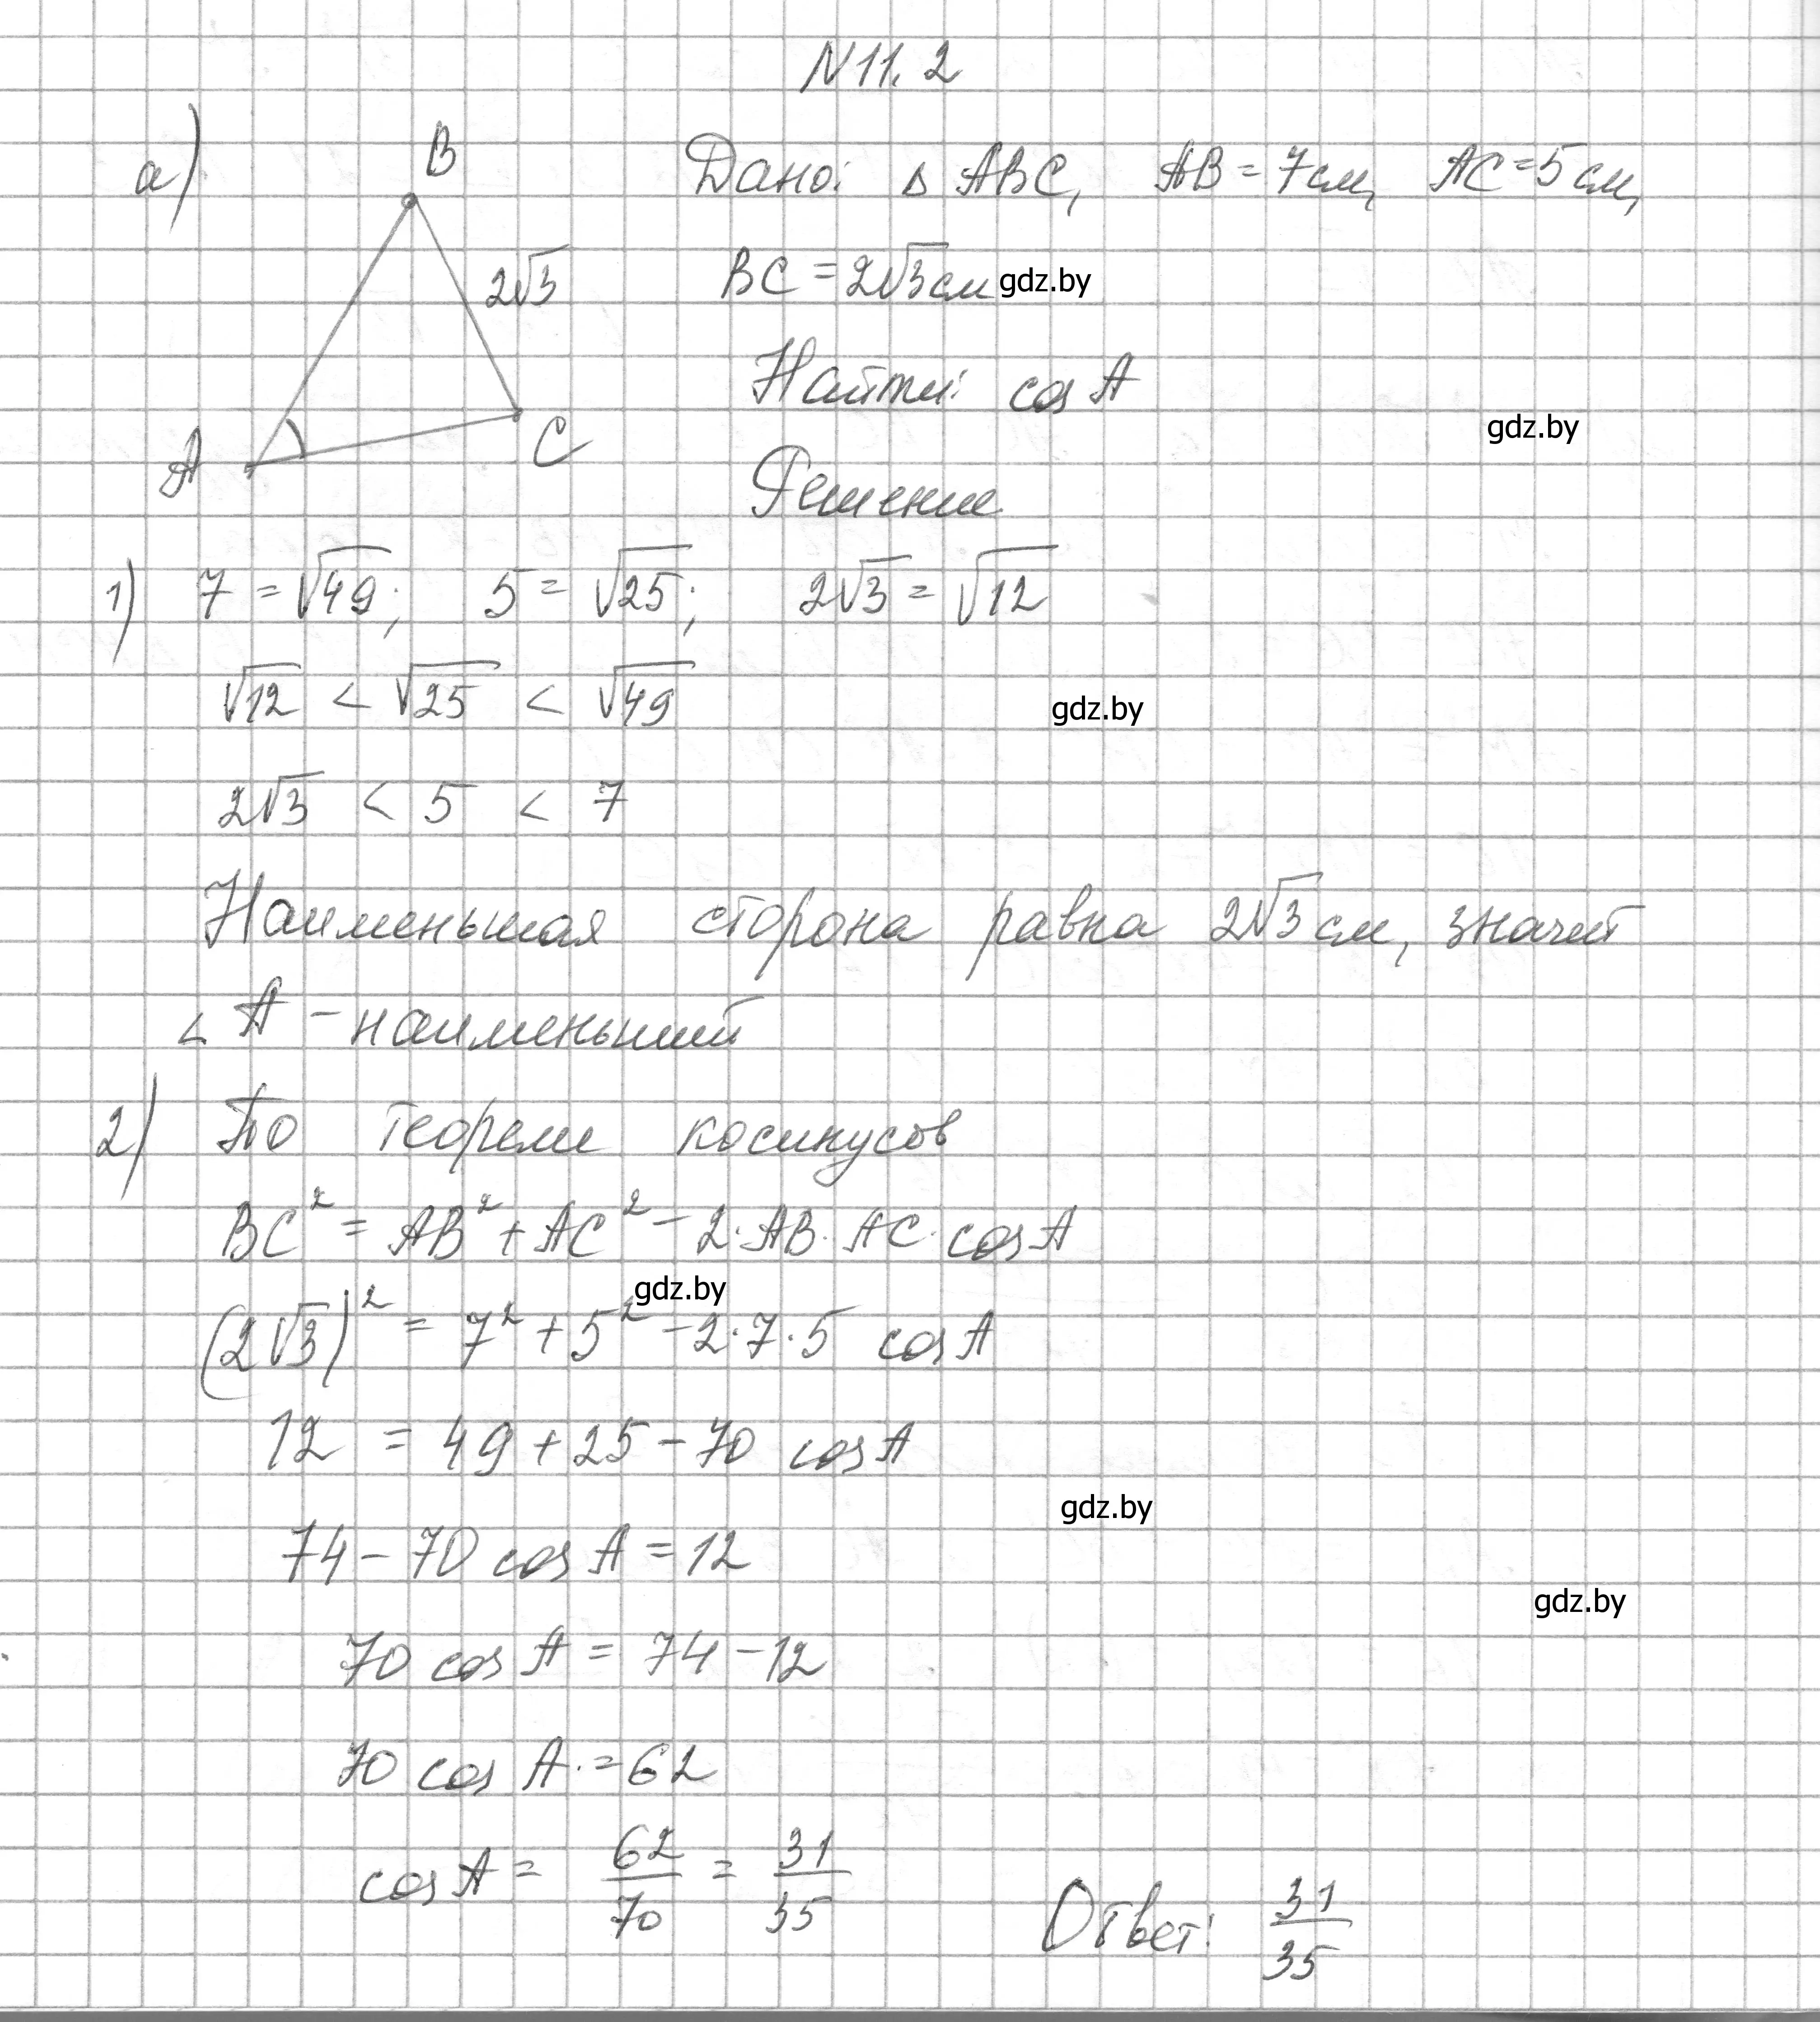 N11.2
а)
B
2√3
A
C
Дано: Δ ABC, AB = 7см, AC = 5 см,
BC = 2√3 см gdz.by
Найти: cos A
gdz.by
Решение
1) 7 = √49; 5 = √25; 2√3 = √12
√12 < √25 < √49
gdz.by
2√3 < 5 < 7
Наименьшая сторона равна 2√3 см, значит
∠ A - наименьший
2) По теореме косинусов
BC² = AB² + AC² - 2·AB·AC·cos A
gdz.by
(2√3)² = 7² + 5² - 2·7·5 cos A
12 = 49 + 25 - 70 cos A
gdz.by
74 - 70 cos A = 12
gdz.by
70 cos A = 74 - 12
70 cos A = 62
cos A = 62/70 = 31/35
Ответ: 31/35